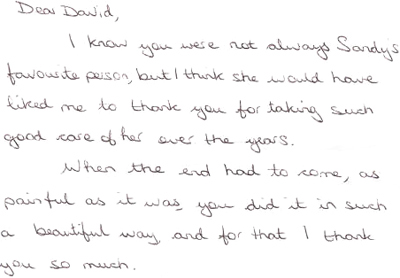 Dear David,
I know you were not always Sandy's
favourite person, but I think she would have
liked me to thank you for taking such
good care of her over the years.
When the end had to come, as
painful as it was, you did it in such
a beautiful way, and for that I thank
you so much.